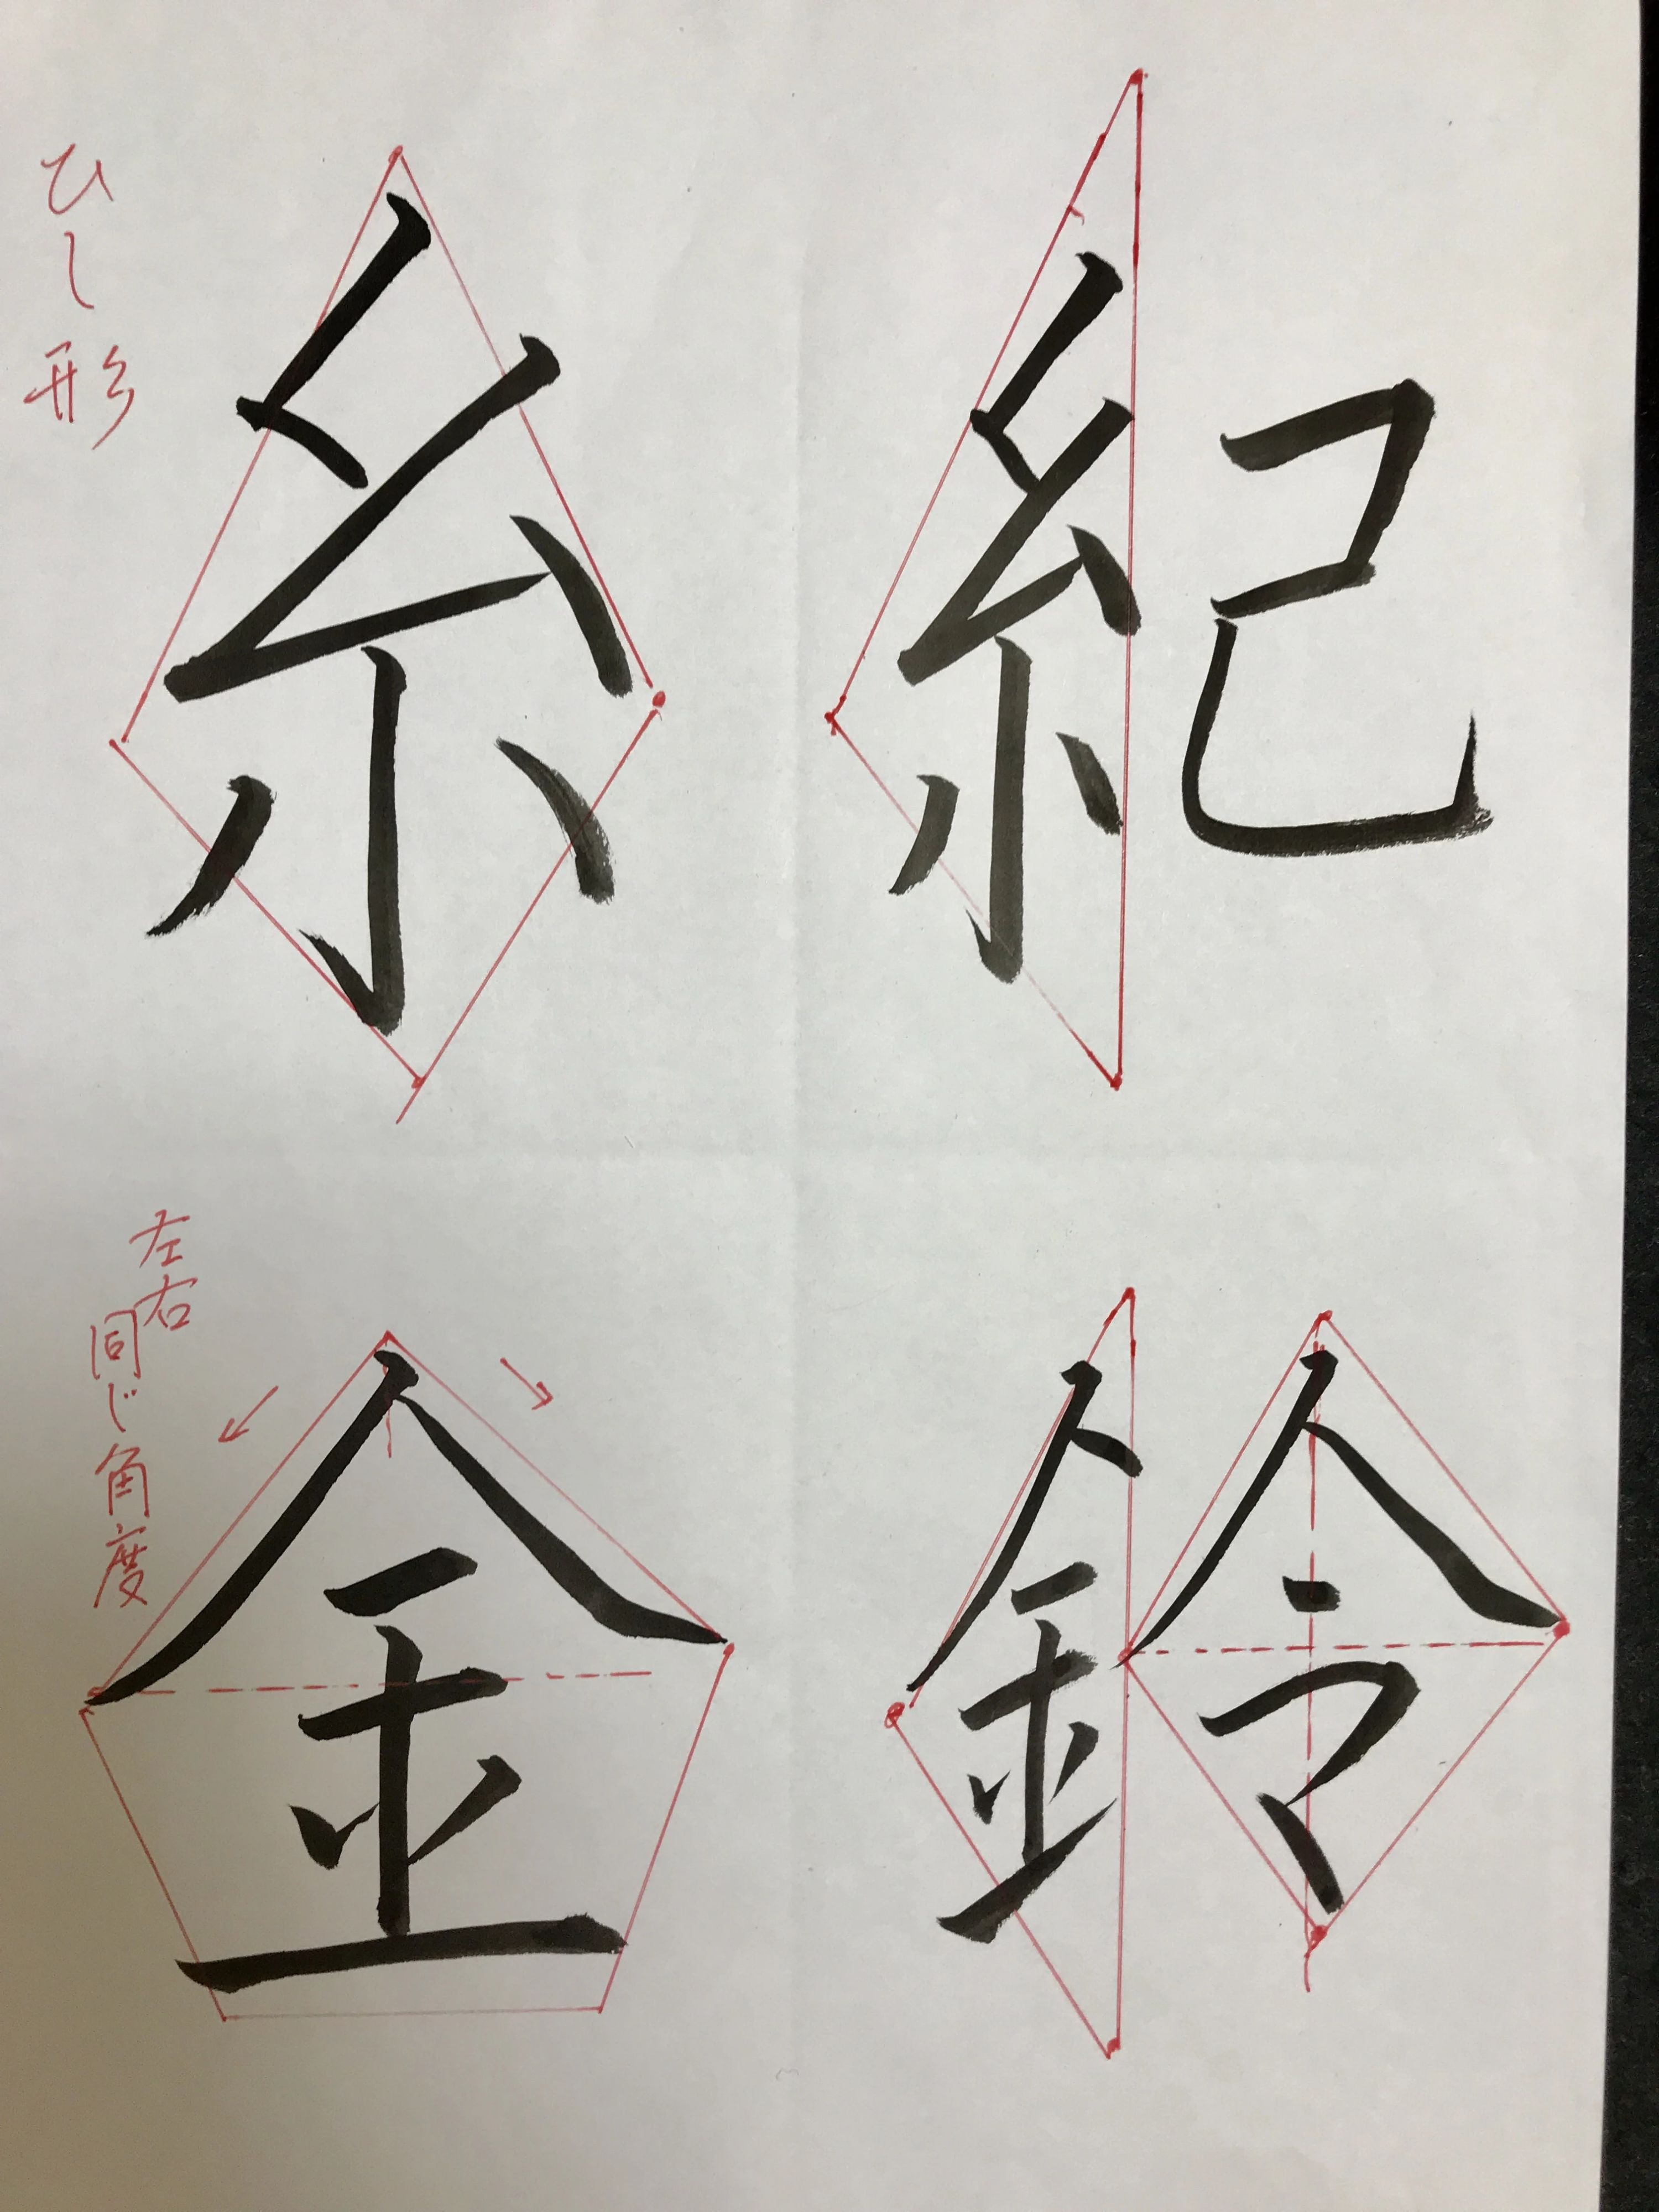 ひし形
糸
紀
左右
同じ角度
金
鈴